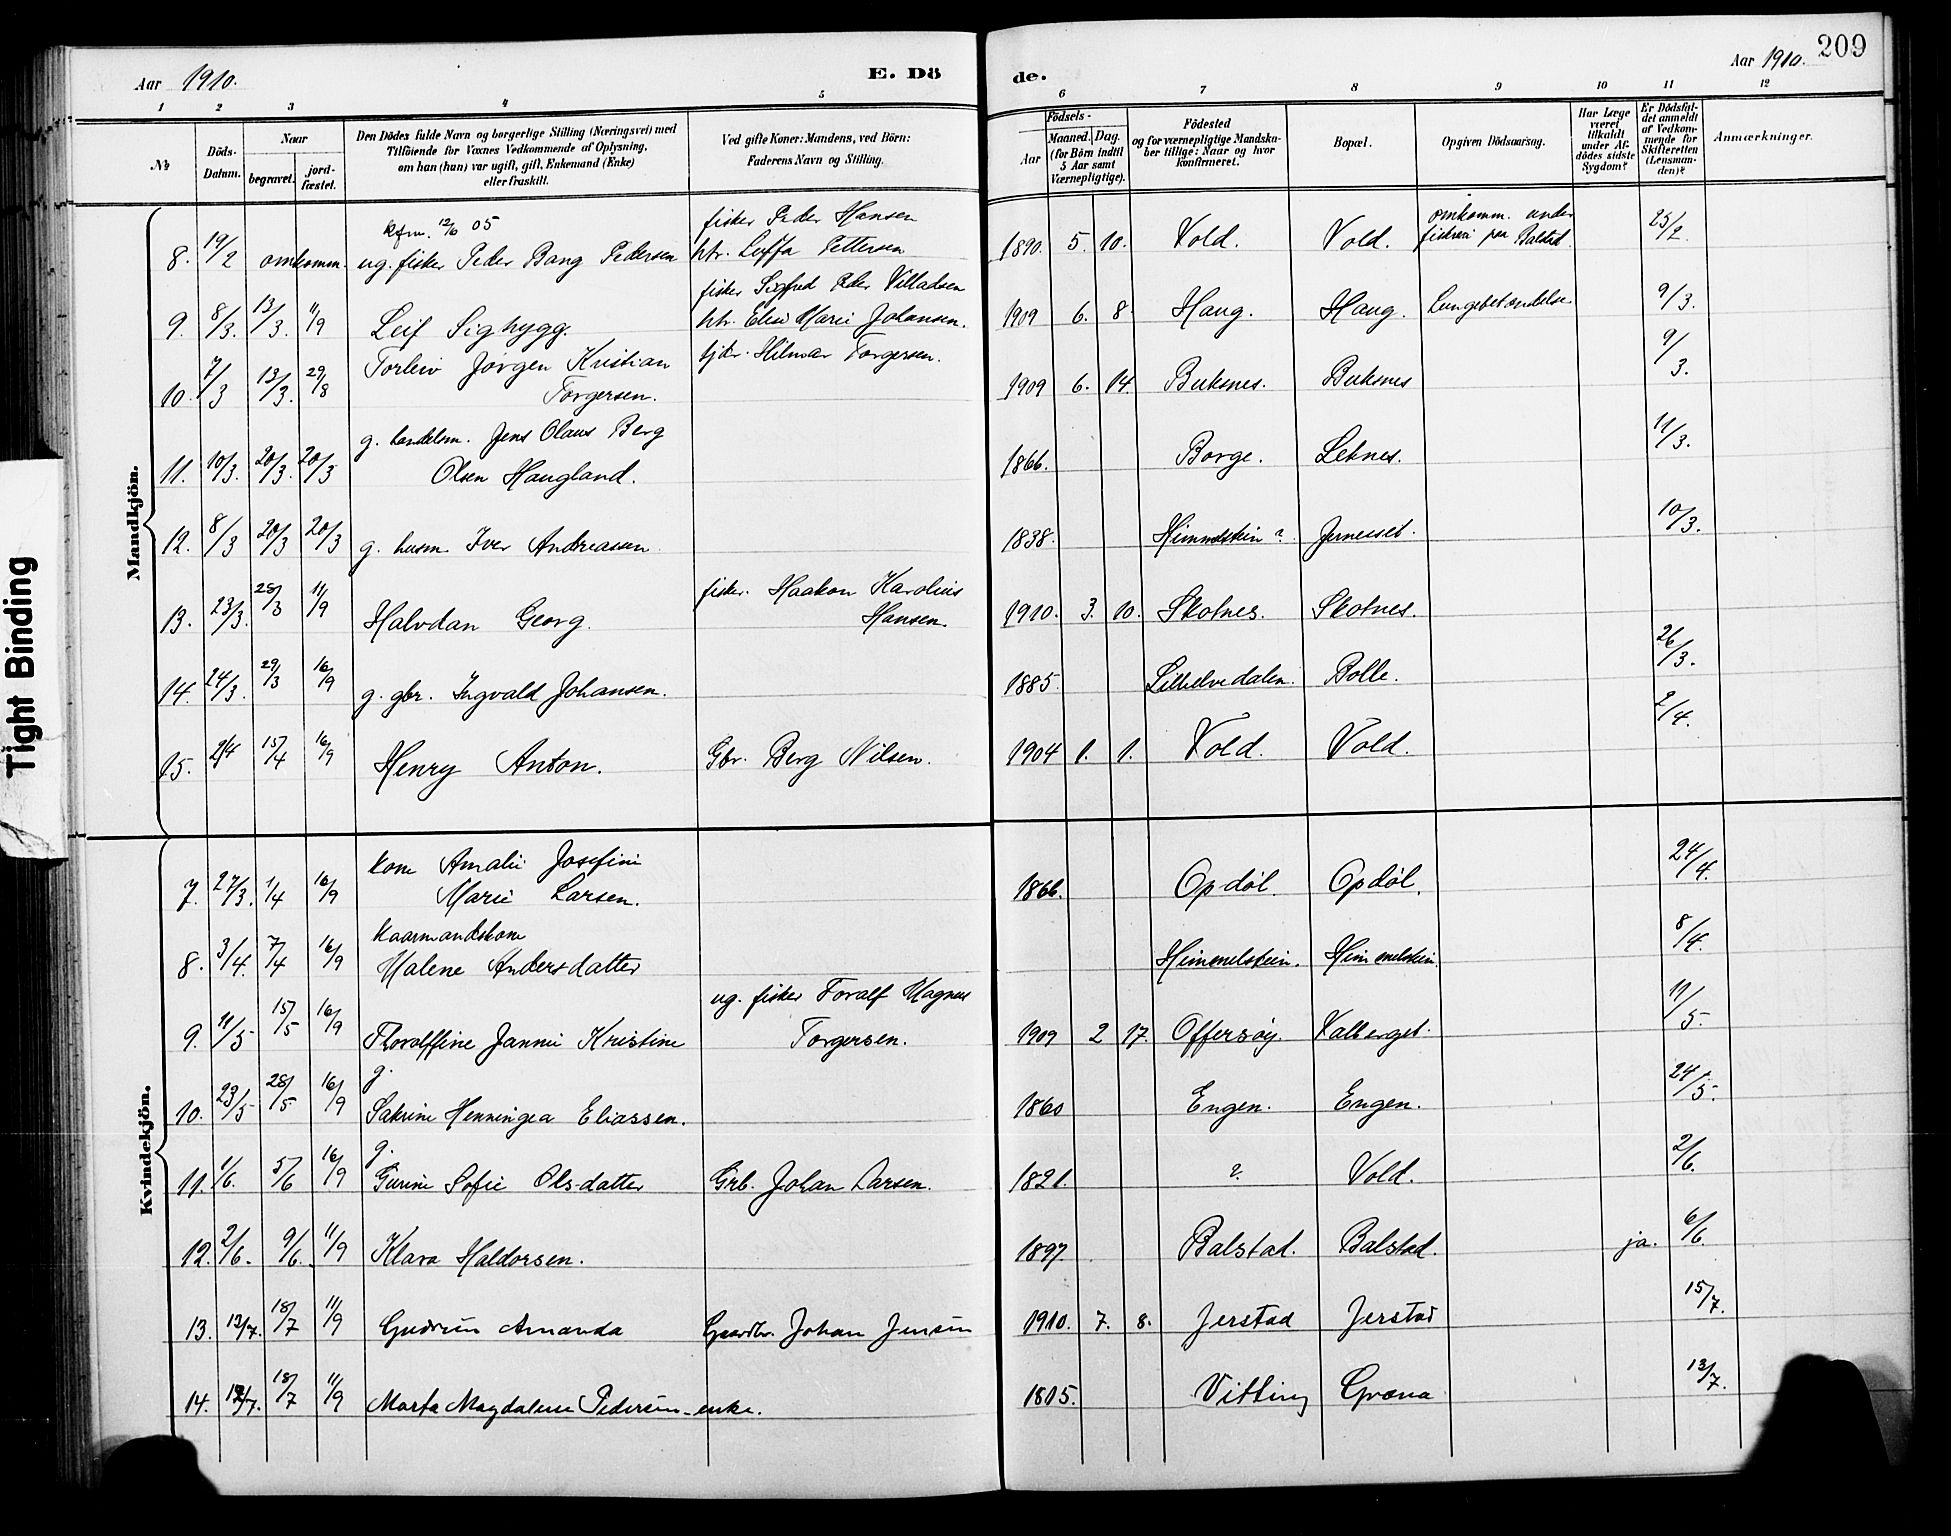 Aar 1910. E. Dö
de. Aar 1910. 209
1 2 3 4 5
6 7 8 9 10 11 12
№ Döds-Datum. Naar begravet. jord-fæstet. Den Dödes fulde Navn og borgerlige Stilling (Næringsvei) med Tilföiende for Voxnes Vedkommende af Oplysning, om han (hun) var ugift, gift, Enkemand (Enke) eller fraskilt. Ved gifte Koner: Mandens, ved Börn: Faderens Navn og Stilling.
Födsels- Aar Maaned. Dag. (for Börn indtil 5 Aar samt Værnepligtige). Födested og for værnepligtige Mandska-ber tillige: Naar og hvor konfirmeret. Bopæl. Opgiven Dödsaarsag. Har Læge været tilkaldt under Af-dödes sidste Sygdom? Er Dödsfal-det anmeldt af Vedkom-mende for Skifteretten (Lensman-den)? Anmærkninger.
Mandkjön.
8. 19/2 omkomm. kfm. 12/6 05 ug. fisker Peder Bang Pedersen fisker Peder Hansen htr. Pettersen 1890. 5. 10. Vold. Vold. omkomm. under fiskeri paa Balstad. 23/2.
9. 8/3. 13/3. 11/9 Leif Sighygg. fisker Sigfred Peder Villadsen htr. Elise Marie Johansen. 1909 6. 8 Haug. Haug. Lungebetændelse 9/3.
10. 7/3 13/3. 29/8 Torleiv Jørgen Kristian Torgersen. tjtr. Hilmar Torgersen. 1909 6. 14. Buksnes. Buksnes 9/3.
11. 10/3. 20/3. 20/3 g. handelsm. Jens Olaus Berg Olsen Haugland. 1866. Borge. Leknes. 11/3.
12. 8/3 20/3 20/3 g. husm. Iver Andreassen. 1838. Himmelstein? 10/3.
13. 23/3. 28/3 11/9 Halvdan Georg. fisker. Haakon Karolius Hansen. 1910. 3. 10. Skotnes. Skotnes.
14. 24/3. 29/3 16/9 g. gbr. Ingvald Johansen. 1885. Bolle. 26/3.
15. 2/4 15/4 16/9 Henry Anton. Gbr. Berg Nilsen. 1904 1. 1. Vold. Vold. 2/4.
Kvindekjön.
7. 27/3. 1/4 16/9 kone Amalie Josefine Marie Larsen. 1866. Opdøl. Opdøl. 24/4.
8. 3/4. 7/4 16/9 kaarmandskone Malene Andersdatter Himmelstein. Himmelstein. 8/4.
9. 11/5 15/5 16/9 Thoralffine Jannie Kristine ug. fisker Toralf Magnus Torgersen. 1909 2 17. Offersøy. Valberget. 11/5.
10. 23/5 28/5 16/9 g. Sakrine Henningea Eliassen. 1860 Engen. Engen. 24/5.
11. 1/6. 5/6 16/9 g. Gurine Sofie Olsdatter Grb. Johan Larsen. 1821. ? Vold. 2/6.
12. 2/6. 9/6. 11/9 Klara Haldorsen. 1897. Balstad. Balstad. ja. 6/6.
13. 13/7. 18/7 11/9 Gudrun Amanda Gaardbr. Johan Jensen 1910. 7. 8. Jerstad Jerstad 15/7.
14. 12/7. 18/7 11/9 Marta Magdalene Pedersen - enke. 1815. Vitting Græna 13/7.
Tight Binding